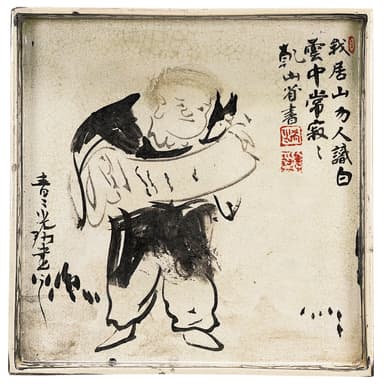 我居山勿人識白
雲中常寂々
乾山省書
青々光琳画之